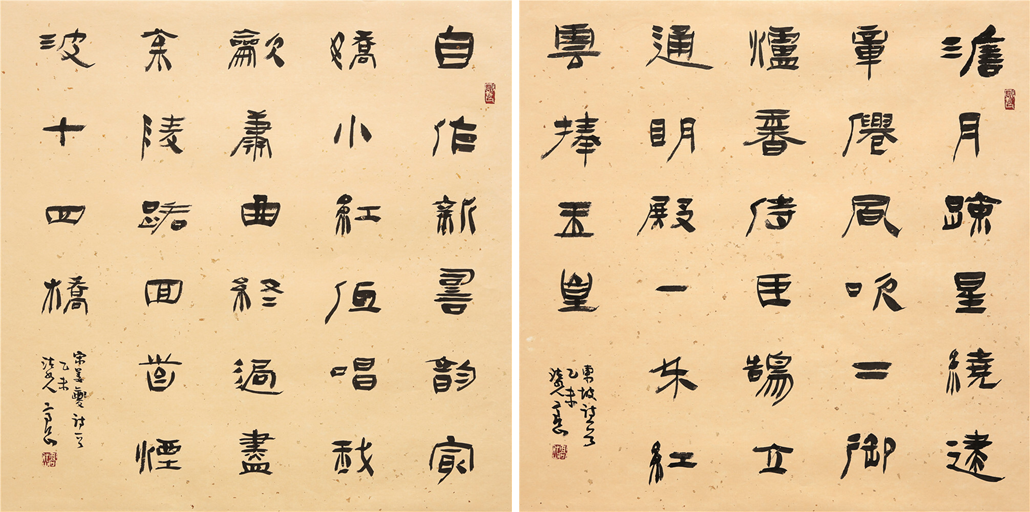 澹月踈星繞建
章僊風吹下御
爐香侍臣鵠立
通明殿一朵紅
雲捧玉皇
東坡詩一首
乙未
自作新詞韻最
嬌小紅低唱我
龡簫曲終過盡
松陵路回首煙
波十四橋
宋姜夔詩一首
乙未